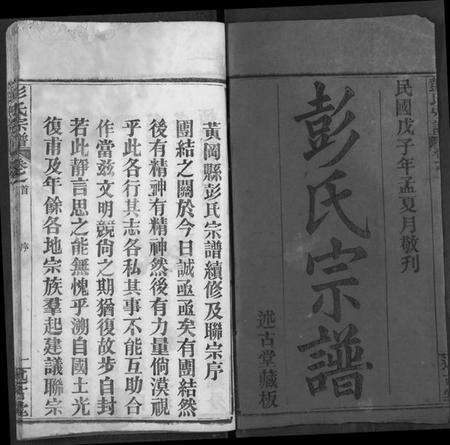 民國戊子年孟夏月敬刊
彭氏宗譜
述古堂藏板
黃岡縣彭氏宗譜續修及聯宗序
團結之關於今日誠亟亟矣有團結然
後有精神有精神然後有力量倘漠視
乎此各行其志各私其事不能互助合
作當茲文明競尙之期猶復故步自封
若此靜言思之能無愧乎溯自國土光
復甫及年餘各地宗族羣起建議聯宗
彭氏宗譜
卷首
序